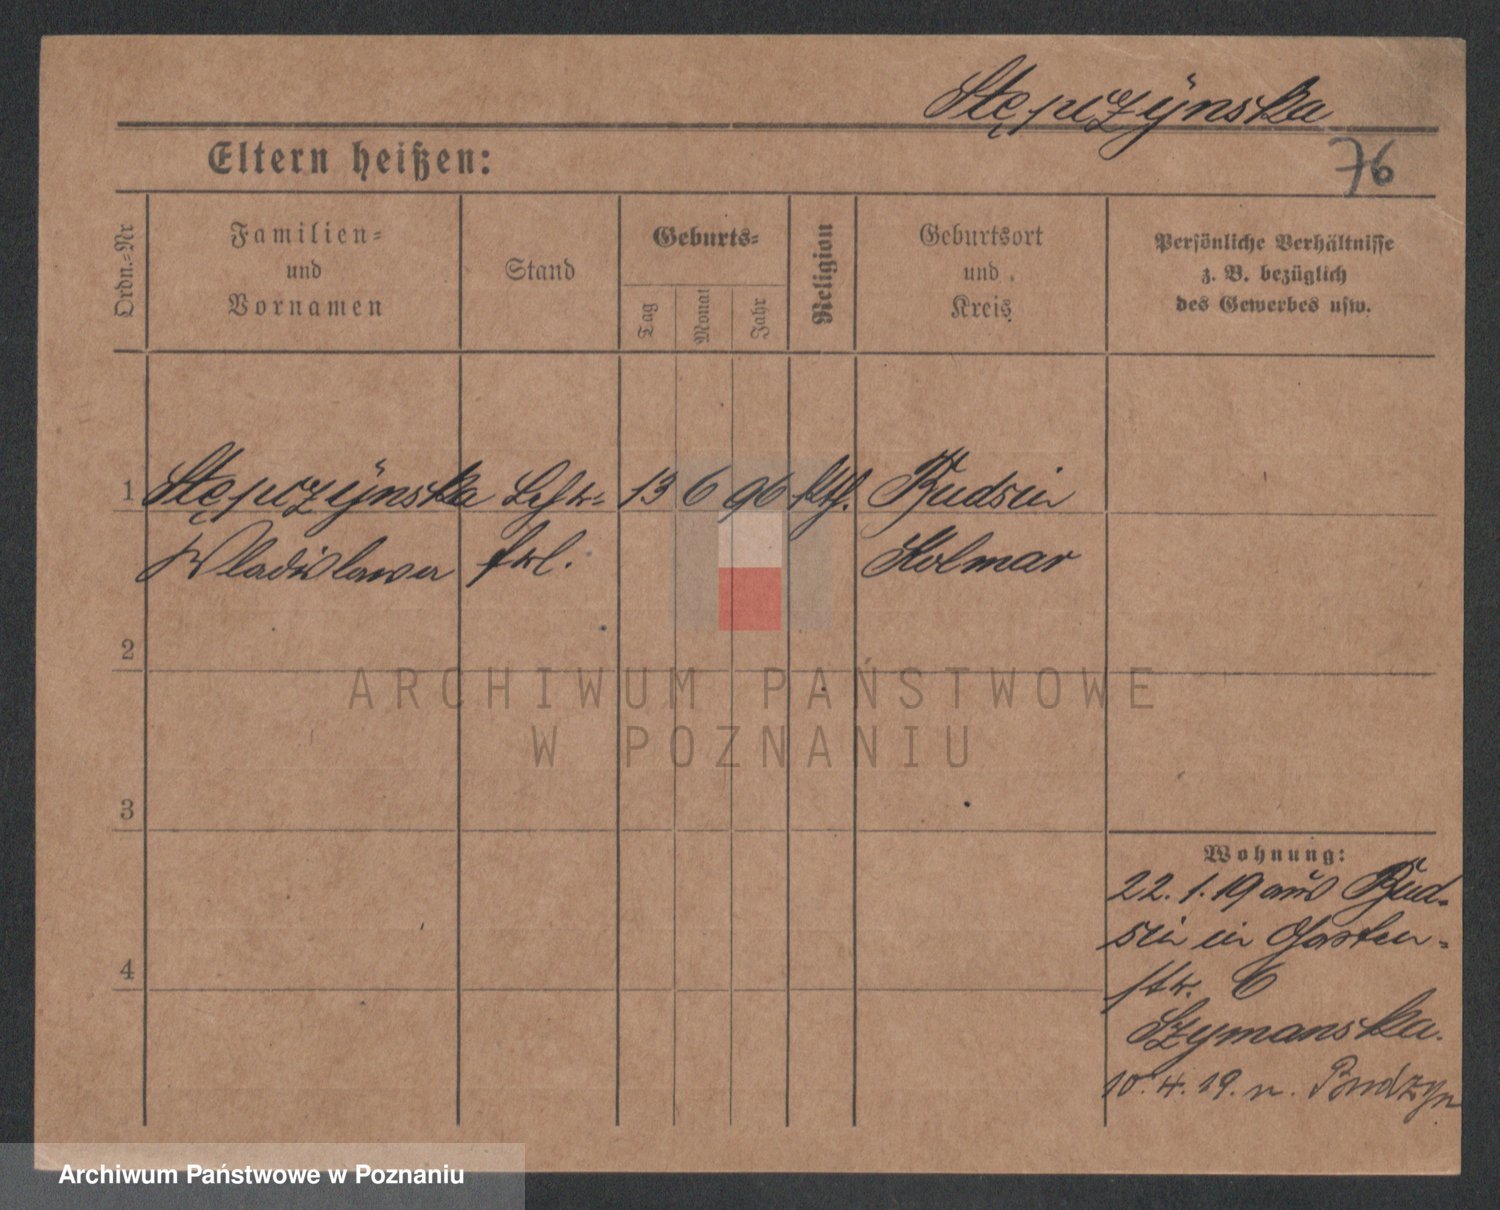 Stępczÿnska
Eltern heißen:
76
Ordn.=Nr
Familien=
und
Vornamen
Stand
Geburts=
Tag
Monat
Jahr
Religion
Geburtsort
und
Kreis
Persönliche Verhältnisse
z. B. bezüglich
des Gewerbes usw.
1 Stępczÿnska Lehr= 13 6 96 kth. Budsin
Wladislawa frl. Kolmar
2
ARCHIWUM PAŃSTWOWE
W POZNANIU
3
Wohnung:
22.1.19 aus Bud-
sin in Garten-
str. 6
Szymanska.
10.4.19. n. Budzyn
4
Archiwum Państwowe w Poznaniu